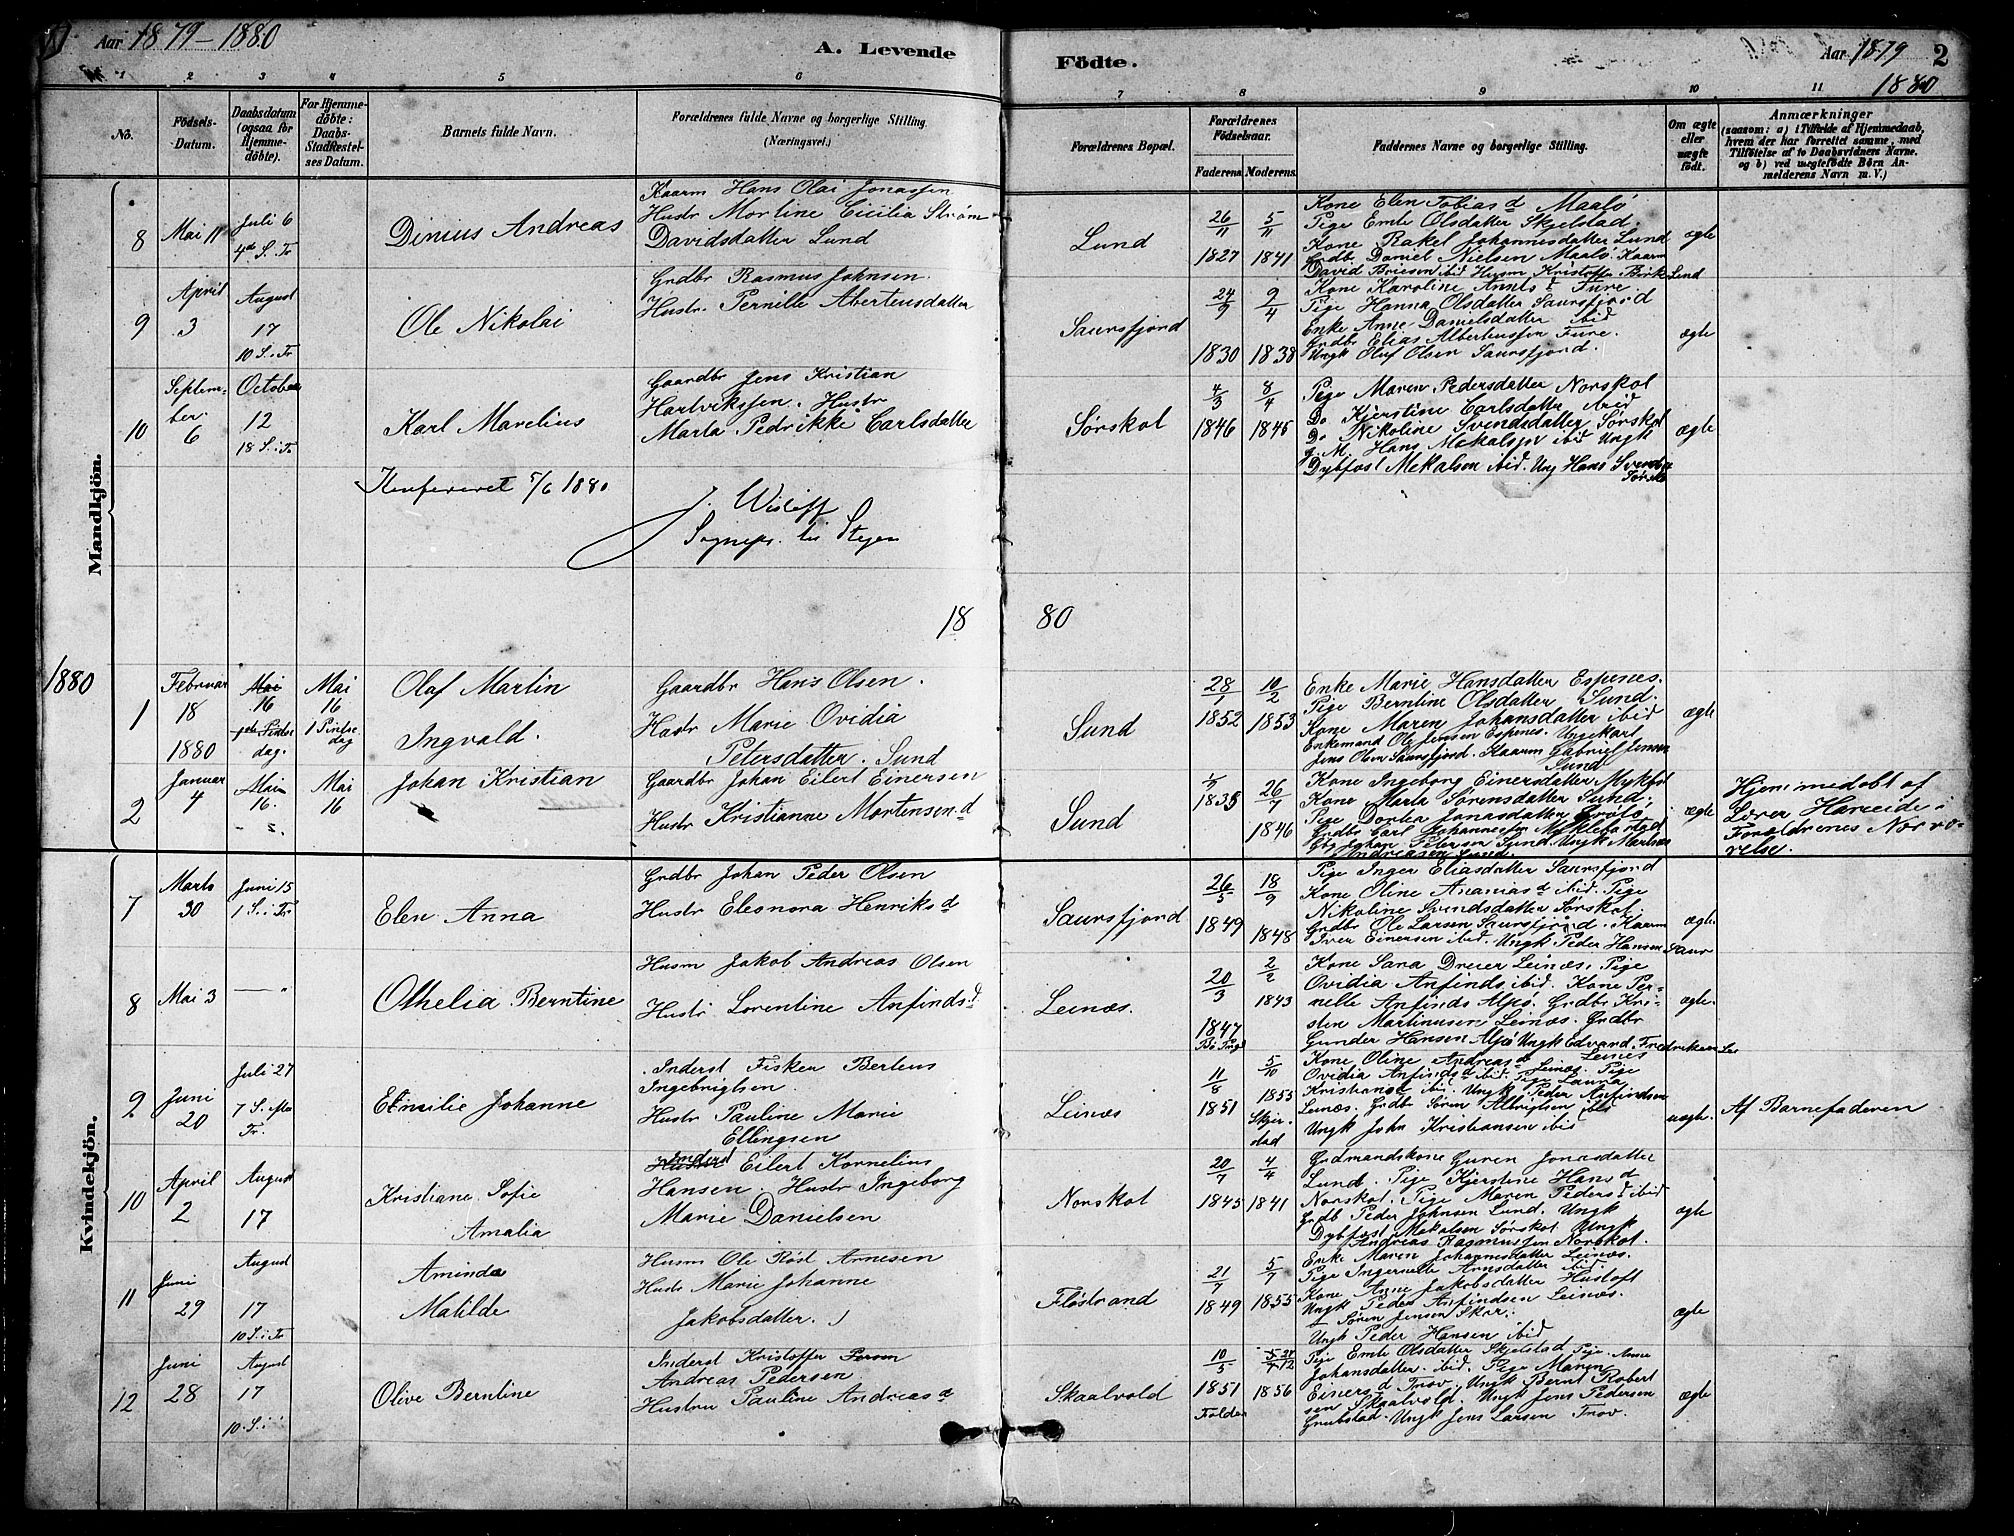 Aar 1879-1880
A. Levende
Födte.
Aar 1879
1880
2
1 2 3 4 5 6 7 8 9 10 11
No.
Födsels-Datum.
Daabsdatum (ogsaa for Hjemme-døbte).
For Hjemme-döbte: Daabs-Stadfæstel-ses Datum.
Barnets fulde Navn.
Forældrenes fulde Navne og borgerlige Stilling. (Næringsvei.)
Forældrenes Bopæl.
Forældrenes Födselsaar.
Faderens. Moderens.
Faddernes Navne og borgerlige Stilling.
Om ægte eller uægte født.
Anmærkninger
(saasom: a) i Tilfælde af Hjemmedaab, hvem der har forrettet samme, med Tilföielse af to Daabsvidners Navne, og b) ved uægtefödte Börn An-melderens Navn m. V.)
Mandkjön.
8
Mai 11
Juli 6
4de S. Tr
Dinius Andreas
Kaarm Hans Olai Jonassen
Hustr Mortine Cicilia Strøm
Davidsdatter Lund
Lund
26/11 1827
5/11 1841
Kone Elen Tobiasd Maalø
Pige Emte Olsdatter Skjelstad
Kone Rakel Johannesdatter Lund
Grdb. Daniel Nielsen Maalø. Kaarm
David Briesen ibid Husm Kristoffer Birk Lund
ægte
9
April
3
August
17
10 S. i Tr
Ole Nikolai
Grdbr Rasmus Johnsen
Hustr. Pernelle Abertensdatter
Saursfjord
24/9 1830
9/4 1838
Kone Karoline Annts d Fure
Pige Hanna Olsdatter Saursfjord
Enke Anne Danielsdatter ibid
Grdbr Elias Albertenssen Fure.
Ungk Oluf Olsen Saursfjord.
ægte
10
Septem-
ber
6
October
12
18 S. i Tr
Karl Marelius
Gaardbr Jens Kristian
Hartvikssen. Hustr
Marta Pedrikke Carlsdatter
Sørskot
4/3 1846
8/4 1845
Pige Maren Pedersdatter Norskot
Do Kjerstine Carlsdatter ibid
Do Nikoline Svendsdatter Sørskot
g. M. Hans Mekalsen ibid Ungk
Dybfast Mekalsen ibid. Ung Hans
ægte
Konfereret 5/6 1880
J. Wisløff
Sognepr. til Stegen
18 80
1880
1
Februar
18
1880
Mai
16
1ste Pintse
dag.
Mai
16
1 Pintse
dag
Olaf Martin
Ingvald.
Gaardbr Hans Olsen.
Hustr Marie Ovidia
Petersdatter. Sund
Sund
28/1 1852
10/2 1853
Enke Marie Hansdatter Espenes.
Pige Berntine Olsdatter Sund.
Kone Maren Johansdatter ibid
Enkemand Ole Jensen Espenes. Ungekarl
Jens Olsen Saursfjord. Kaarm Gabriel Jensen
Sund
ægte
2
Januar
4
Mai
16.
Mai
16
Johan Kristian
Gaardbr Johan Eilert Einersen
Hustr Kristianne Mortensen d
Sund
1835
26/7 1846
Kone Ingeborg Einersdatter
Kone Marta Sørensdatter Sund.
Pige Dortea Jonasdatter
Grdbr Carl Johannessen Myklebostad
Johan Petersen Sund. Ungk Martinus
Andreasen Sund.
ægte
Hjemmedøbt af
Lærer Hareide i
Forældrenes Nærvæ-
relse.
Kvindekjön.
7
Marts
30
Juni 15
1 S. i Tr.
Elen Anna
Grdbr Johan Peder Olsen
Hustr Eleonora Henriks d
Saursfjord
26/5 1849
18/9 1848
Pige Inger Eliasdatter Saursfjord
Kone Oline Ananias d ibid. Pige
Nikoline Svendsdatter Sørskot.
Grdbr Ole Larsen Saursfjord. Kaarm
Iver Einersen ibid. Ungk Peder Hansen Saur
ægte
8
Mai 3
— "
Othelia Berntine
Husm Jakob Andreas Olsen
Hustr Lorentine Anfinds d
Leinæs.
20/3 1847
2/2 1843
Kone Sara Dreier Leinæs. Pige
Ovidia Anfinds ibid. Kone Per-
nelle Anfinds Alpø. Grdbr Kri-
sten Martinusen Leinæs. Grdbr
Gunder Hansen Alpø Ungk Edvard Fredriksen Lei
ægte.
9
Juni
20
Juli 27
7 S. efter
Tr.
Emilie Johanne
Inderst Fisker Bertens
Ingebrigtsen.
Hustr Pauline Marie
Ellingsen
Leinæs
11/8 1851
5/10 1855
Skjer-
stad
Kone Oline Andreas d Leines
Ovidia Anfinds d ibid. Pige Laura
Kristians d ibid. Ungk Peder Anfindsen
Leinæs. Grdbr Søren Albrigtsen ibid
Ungk John Kristiansen ibid
uægte.
Af Barnefaderen
10
April
2
August
17
Kristiane Sofie
Amalia
Inderst Eilert Kornelius
Hansen. Hustr Ingeborg
Marie Danielsen
Norskot
20/7 1845
4/4 1841
Grdmandskone Guren Jonasdatter
Lund. Pige Kjerstine Hans d
Norskot. Pige Maren Peders d ibid
Grdb Peder Johnsen Lund. Ungk
Dybfast Mekalsen Sørskot. Ungk
Andreas Rasmussen Norskot.
ægte
11
Juni
29
August
17
10 S. i Tr
Aminda
Matilde
Husm Ole Røst Arnesen
Hustr Marie Johanne
Jakobsdatter.
Fløstrand
21/7 1849
5/7 1855
Enke Maren Johannesdatter Leinæs.
Pige Ingernelle Arnsdatter ibid.
Kone Anne Jakobsdatter Hustoft
Ungk Peder Anfindsen Leinæs.
Søren Jensen Skor.
Ungk Peder Hansen ibid
ægte
12
Juni
28
August
17
10 S. i
Olive Berntine
Inderst Kristoffer
Andreas Pedersen
Hustru Pauline Andreas d
Skaalvold
10/5 1851
Folden
27/12 1856
Pige Emte Olsdatter Skjelstad Pige. Anne
Johansdatter ibid. Pige Maren
Einers d Trov. Ungk Bernt Robert
sen Skaalvold. Ungk Jens Pedersen
Grubstad. Ungk Jens Larsen Trov.
ægte